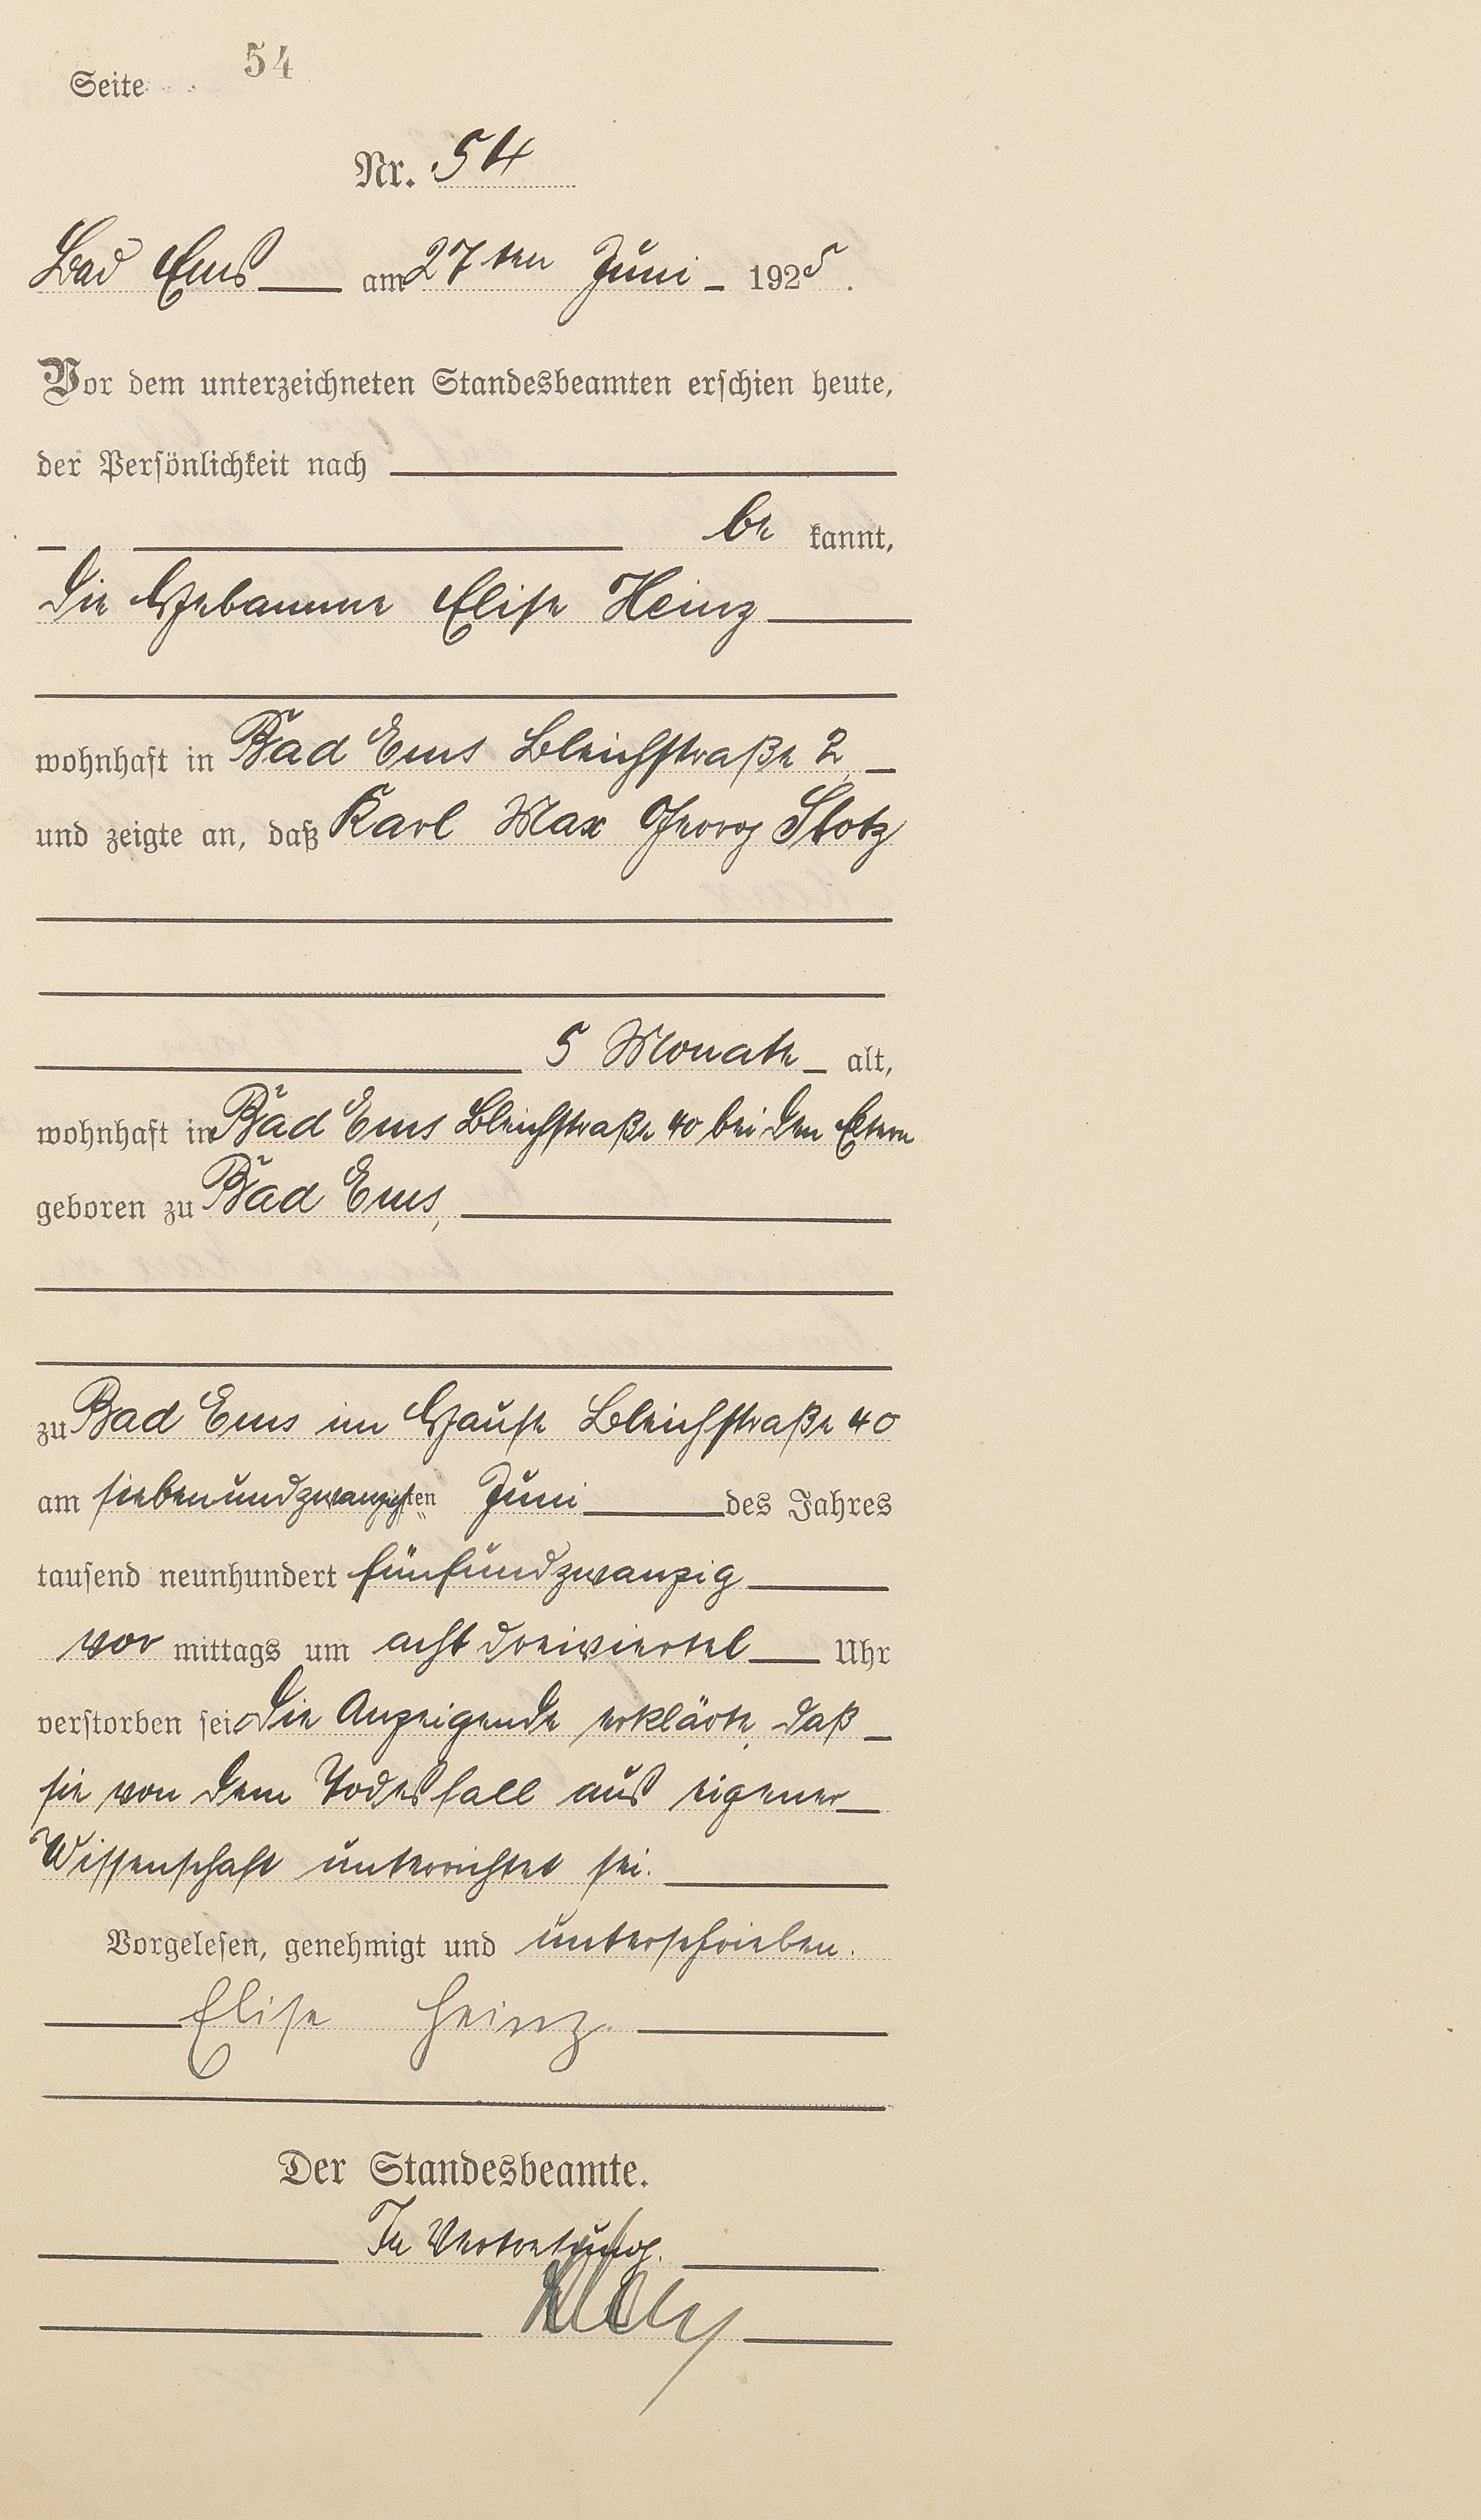 Seite 54
Nr. 54
Bad Ems am 27ten Juni 1925.
Vor dem unterzeichneten Standesbeamten erschien heute,
der Persönlichkeit nach
be kannt,
die Hebamme Elise Heinz
wohnhaft in Bad Ems Bleichstraße 2
und zeigte an, daß Karl Max Georg Stotz
5 Monate alt,
wohnhaft in Bad Ems Bleichstraße 40 bei den Eltern
geboren zu Bad Ems,
zu Bad Ems im Hause Bleichstraße 40
am siebenundzwanzigsten Juni des Jahres
tausend neunhundert fünfundzwanzig
vor mittags um acht dreiviertel Uhr
verstorben sei. Die Anzeigende erklärte, daß
sie von dem Todesfall aus eigener
Wissenschaft unterrichtet sei.
Vorgelesen, genehmigt und unterschrieben.
Elise Heinz.
Der Standesbeamte.
In Vertretung.